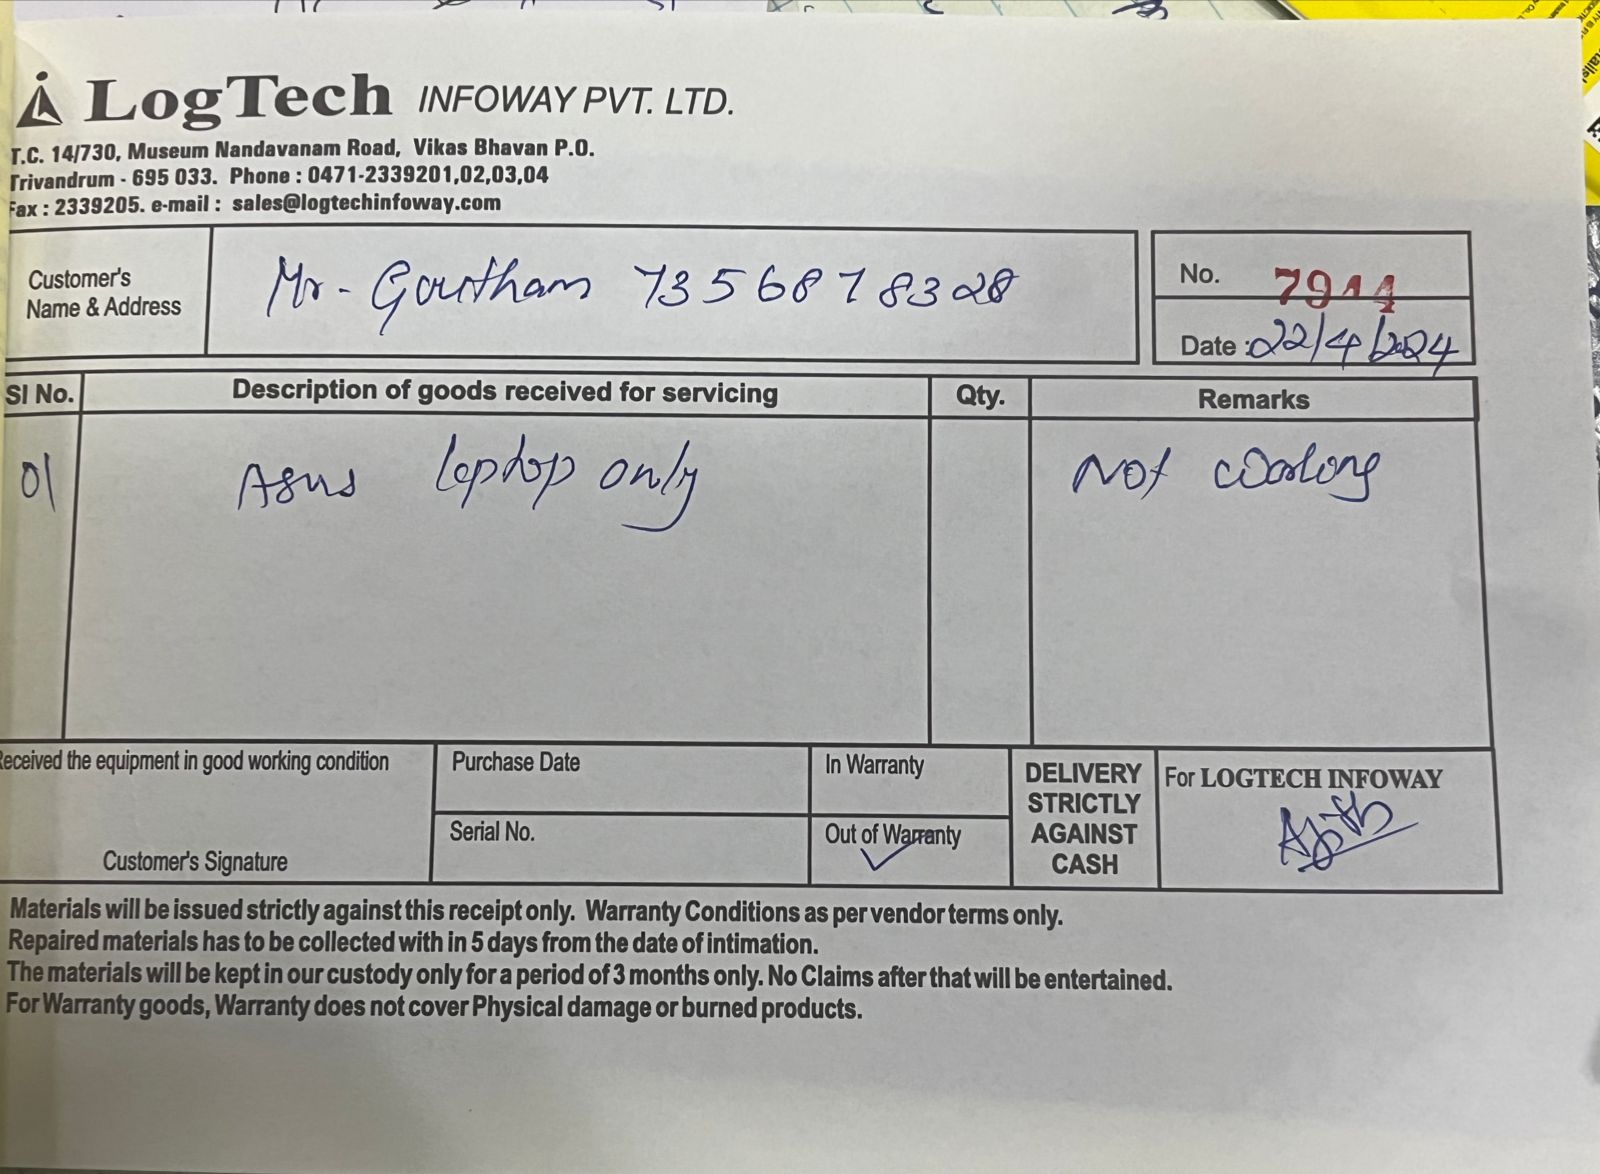 LogTech INFOWAY PVT. LTD.
T.C. 14/730, Museum Nandavanam Road, Vikas Bhavan P.O.
Trivandrum - 695 033. Phone : 0471-2339201,02,03,04
Fax : 2339205. e-mail : sales@logtechinfoway.com
Customer's
Name & Address
Mr - Gowtham 7356878328
No. 7944
Date : 22/4/2024
Sl No. Description of goods received for servicing Qty. Remarks
01 Asus laptop only Not working
Received the equipment in good working condition
Customer's Signature
Purchase Date
Serial No.
In Warranty
Out of Warranty ✓
DELIVERY
STRICTLY
AGAINST
CASH
For LOGTECH INFOWAY
Materials will be issued strictly against this receipt only. Warranty Conditions as per vendor terms only.
Repaired materials has to be collected with in 5 days from the date of intimation.
The materials will be kept in our custody only for a period of 3 months only. No Claims after that will be entertained.
For Warranty goods, Warranty does not cover Physical damage or burned products.